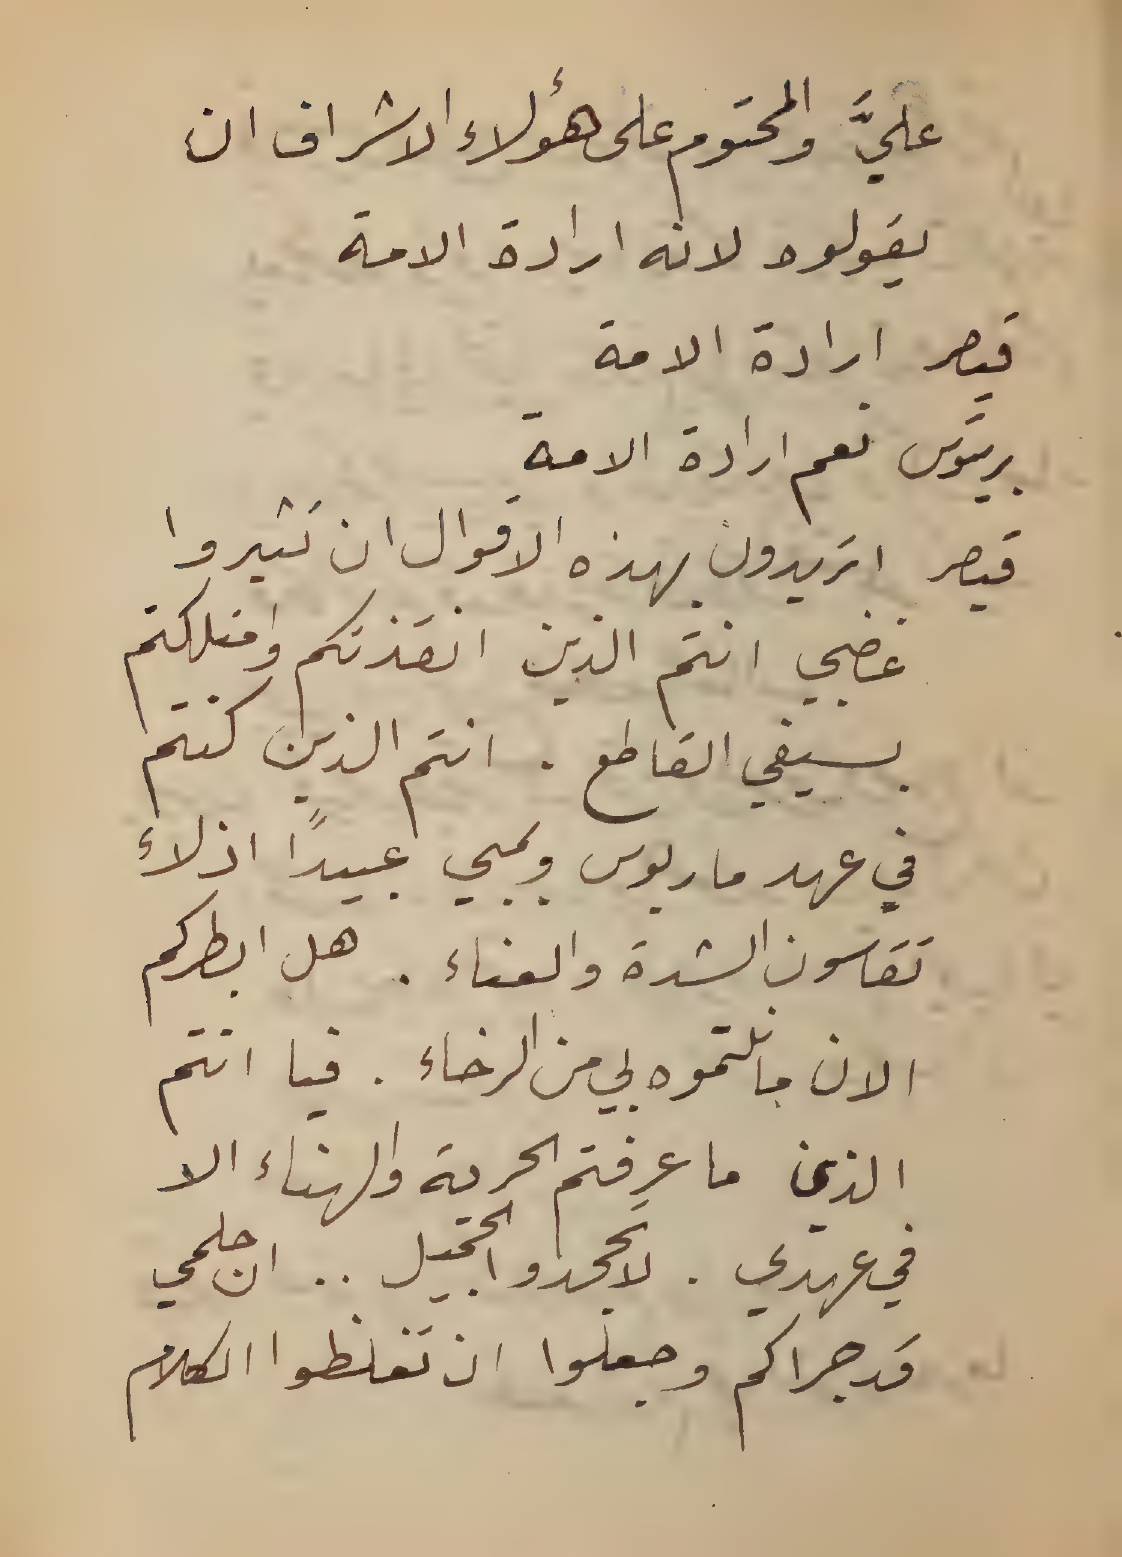 عليَّ والمحتوم على هؤلاء الاشراف ان
يقولوه لانه ارادة الامة
قيصر ارادة الامة
بريتوس نعم ارادة الامة
قيصر اتريدون بهذه الاقوال ان تثيروا
غضبي انتم الذين انقذتكم وامتلكتم
بسيفي القاطع . انتم الذين كنتم
في عهد ماريوس وبمبي عبيدًا اذلاء
تقاسون الشدة والعناء . هل ابطركم
الان ما نلتموه بي من الرخاء . فيا انتم
الذين ما عرفتم الحرية والهناء الا
في عهدي . لا تجحدوا الجميل .. ان حلمي
قد جراكم وجعلوا ان تغلظوا الكلام